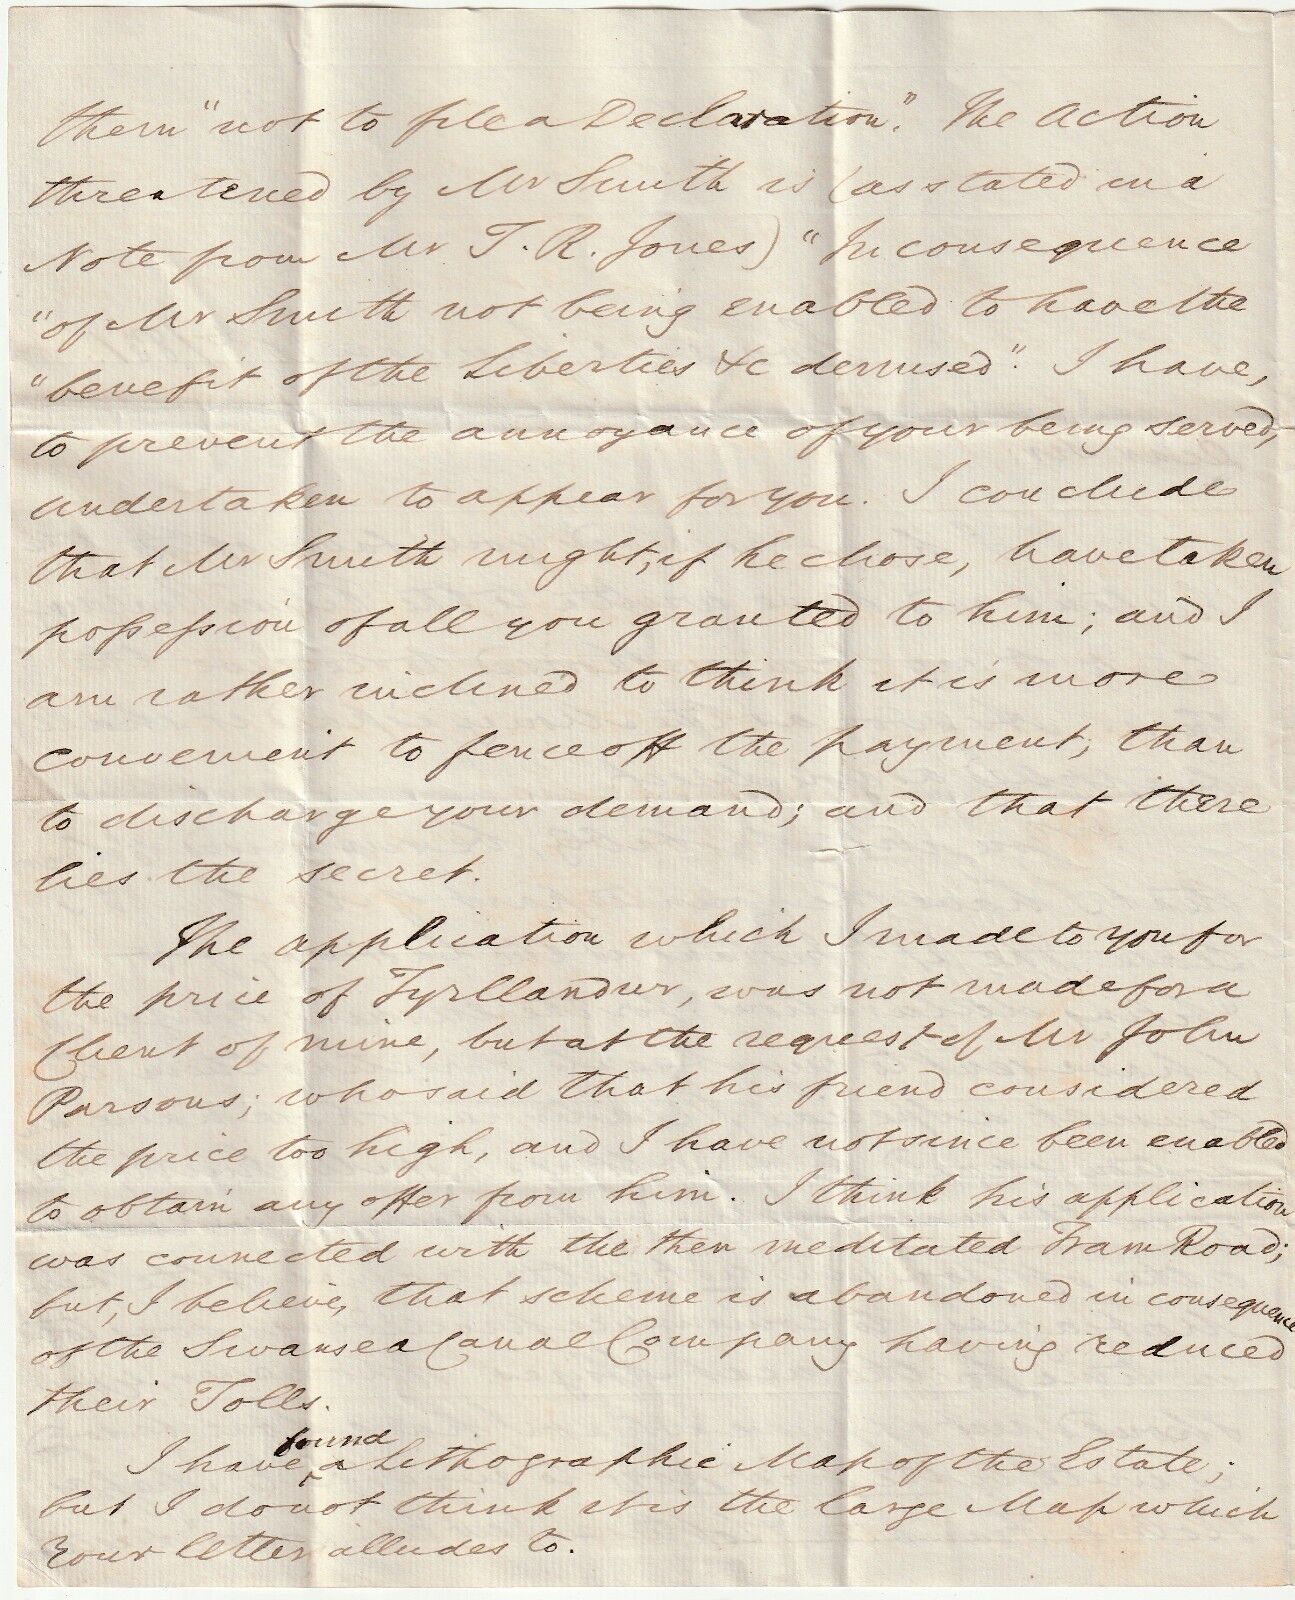 them "not to file a Declaration". The Action
threatened by Mr Smith is (as stated in a
Note from Mr T. R. Jones) "In consequence
"of Mr Smith not being enabled to have the
"benefit of the Liberties &c demised". I have,
to prevent the annoyance of your being served,
undertaken to appear for you. I conclude
that Mr Smith might, if he chose, have taken
possession of all you granted to him; and I
am rather inclined to think it is more
convenient to fence off the payment, than
to discharge your demand; and that there
lies the secret.
The application which I made to you for
the price of Tyrllandwr, was not made for a
Client of mine, but at the request of Mr John
Parsons; who said that his friend considered
the price too high, and I have not since been enabled
to obtain any offer from him. I think his application
was connected with the then meditated Tram Road;
but, I believe, that scheme is abandoned in consequence
of the Swansea Canal Company having reduced
their Tolls.
I have found a Lithographic Map of the Estate;
but I do not think it is the large Map which
Your letter alludes to.